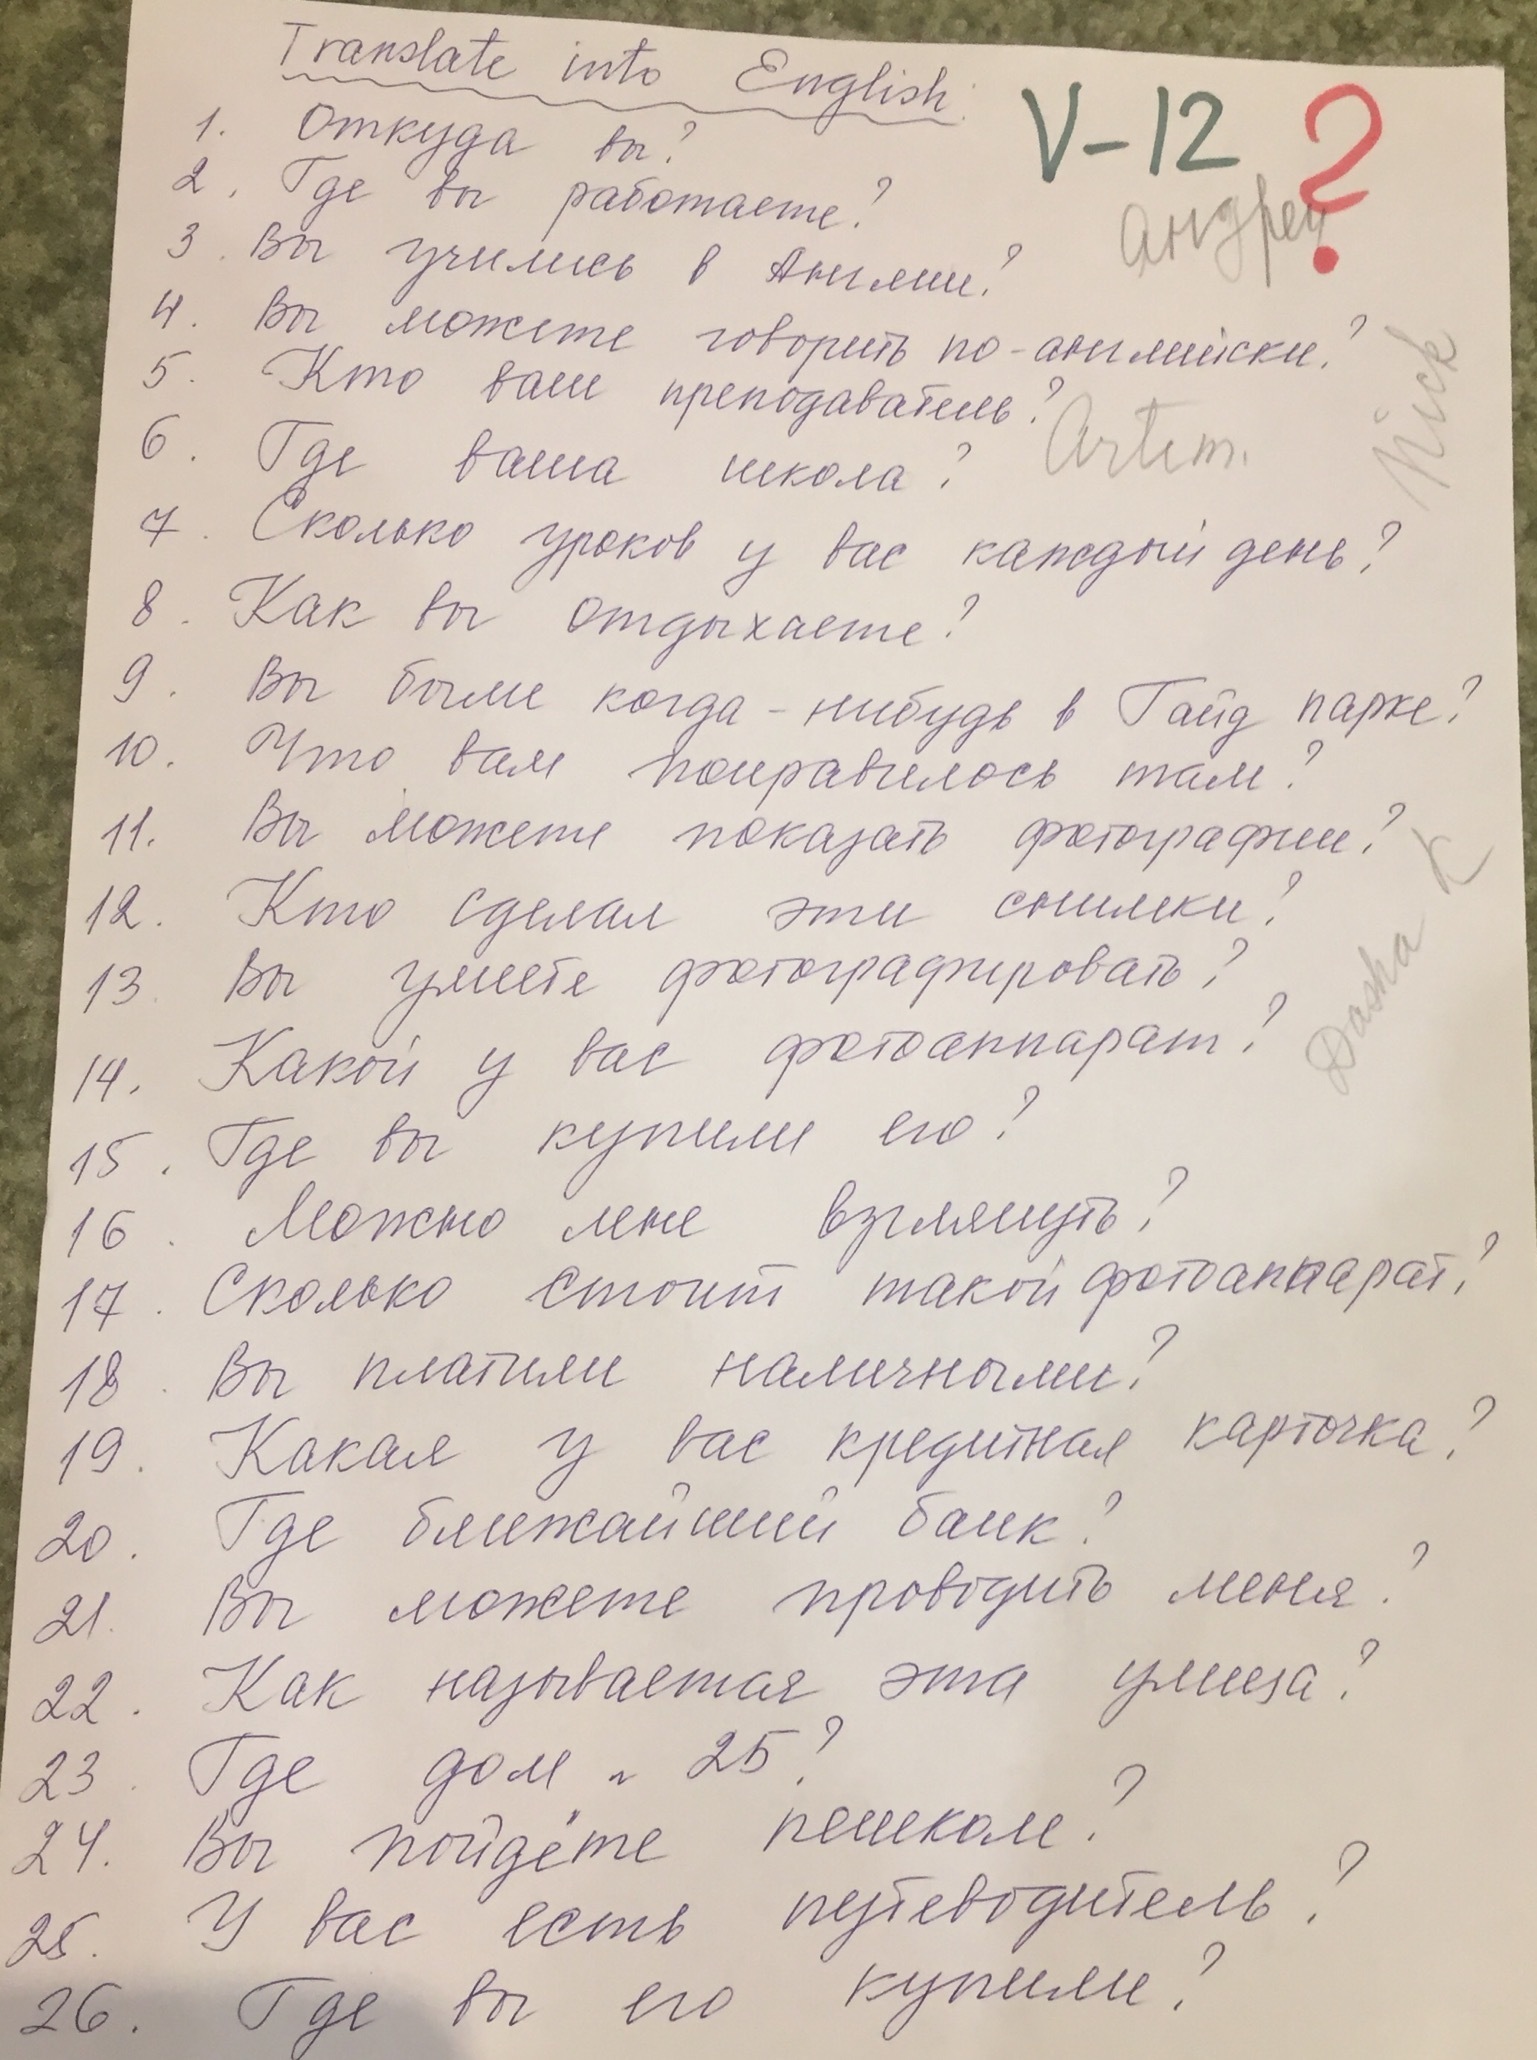 Translate into English
V-12 ?
1. Откуда вы?
2. Где вы работаете?
Андрей
3. Вы учились в Англии?
4. Вы можете говорить по-английски?
Nick
5. Кто ваш преподаватель?
Artem.
6. Где ваша школа?
7. Сколько уроков у вас каждый день?
8. Как вы отдыхаете?
9. Вы были когда-нибудь в Гайд парке?
10. Что вам понравилось там?
11. Вы можете показать фотографии?
12. Кто сделал эти снимки?
Dasha K
13. Вы умеете фотографировать?
14. Какой у вас фотоаппарат?
15. Где вы купили его?
16. Можно мне взглянуть?
17. Сколько стоит такой фотоаппарат?
18. Вы платили наличными?
19. Какая у вас кредитная карточка?
20. Где ближайший банк?
21. Вы можете проводить меня?
22. Как называется эта улица?
23. Где дом 25?
24. Вы пойдёте пешком?
25. У вас есть путеводитель?
26. Где вы его купили?